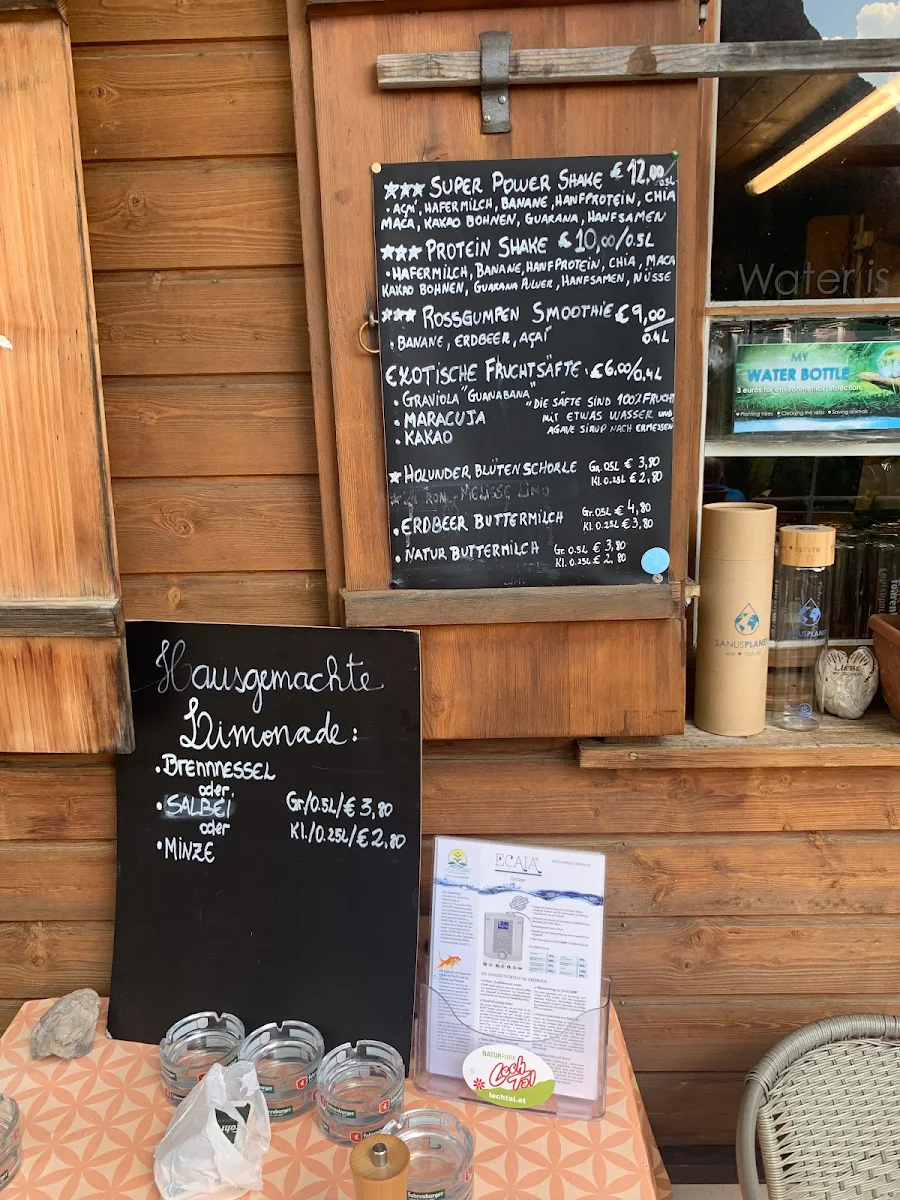 ★★★ SUPER POWER SHAKE € 12,00 0.5L
• AÇAÍ, HAFERMILCH, BANANE, HANFPROTEIN, CHIA
MACA, KAKAO BOHNEN, GUARANA, HANFSAMEN
★★★ PROTEIN SHAKE € 10,00/0.5L
• HAFERMILCH, BANANE, HANFPROTEIN, CHIA, MACA
KAKAO BOHNEN, GUARANA PULVER, HANFSAMEN, NÜSSE
★★★ ROSSGUMPEN SMOOTHIE € 9,00
• BANANE, ERDBEER, AÇAÍ 0.4L
EXOTISCHE FRUCHTSÄFTE • € 6.00/0,4L
• GRAVIOLA "GUANABANA"
"DIE SÄFTE SIND 100% FRUCHT
• MARACUJA MIT ETWAS WASSER UND
• KAKAO AGAVE SIRUP NACH ERMESSEN
★ HOLUNDER BLÜTEN SCHORLE Gr. 0.5L € 3,80
Kl. 0.25L € 2,80
MELISSE LIMO
• ERDBEER BUTTERMILCH Gr. 0.5L € 4,80
Kl. 0.25L € 3,80
• NATUR BUTTERMILCH Gr. 0.5L € 3,80
Kl. 0.25L € 2,80
Water is
MY
WATER BOTTLE
3 euros for environmental protection
♥ Planting trees ♥ Cleaning the seas ♥ Saving animals
SANUSPLANET
LIEBE
Hausgemachte
Limonade:
• BRENNNESSEL
oder
• SALBEI Gr/0.5L/€ 3,80
oder Kl./0.25L/€ 2.80
• MINZE
ECAIA
NATURPARK
Lech
Tol
lechtal.at
Fohrenburger